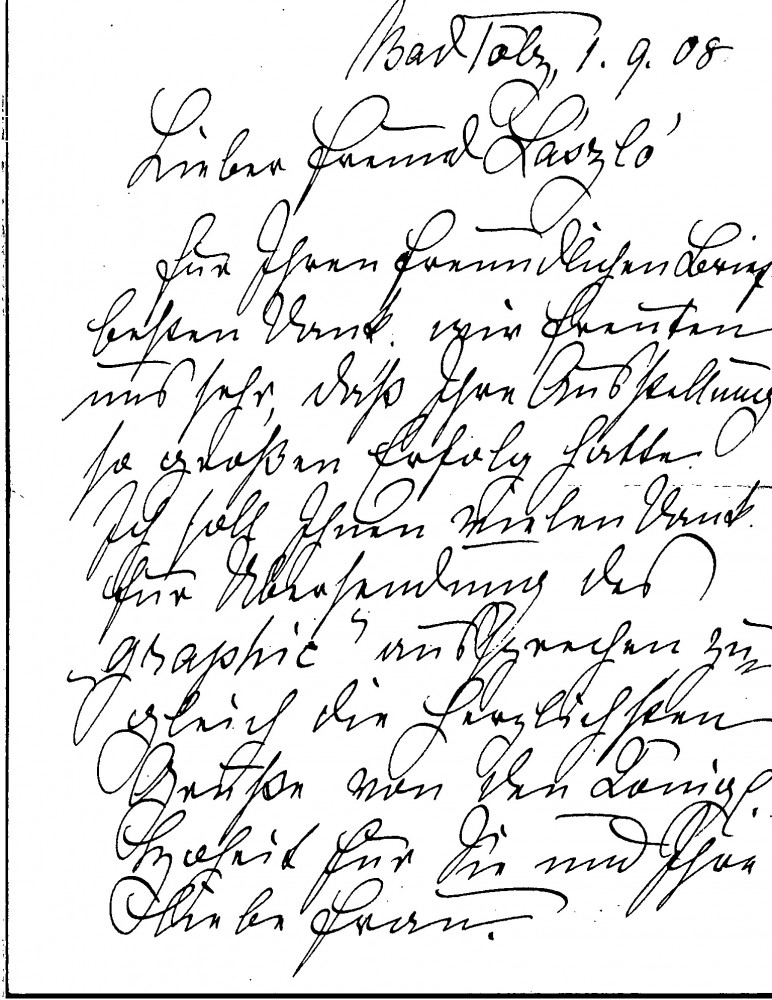 Bad Tölz, 1. 9. 08
Lieber Freund László
für Ihren freundlichen Brief
besten Dank. wir freuten
uns sehr, daß Ihre Ausstellung
so großen Erfolg hatte.
Ich soll Ihnen vielen Dank
für Übersendung des
„graphic" aussprechen zu-
gleich die herzlichsten
Grüße von den Königl.
Hoheit für Sie und Ihre
liebe Frau.